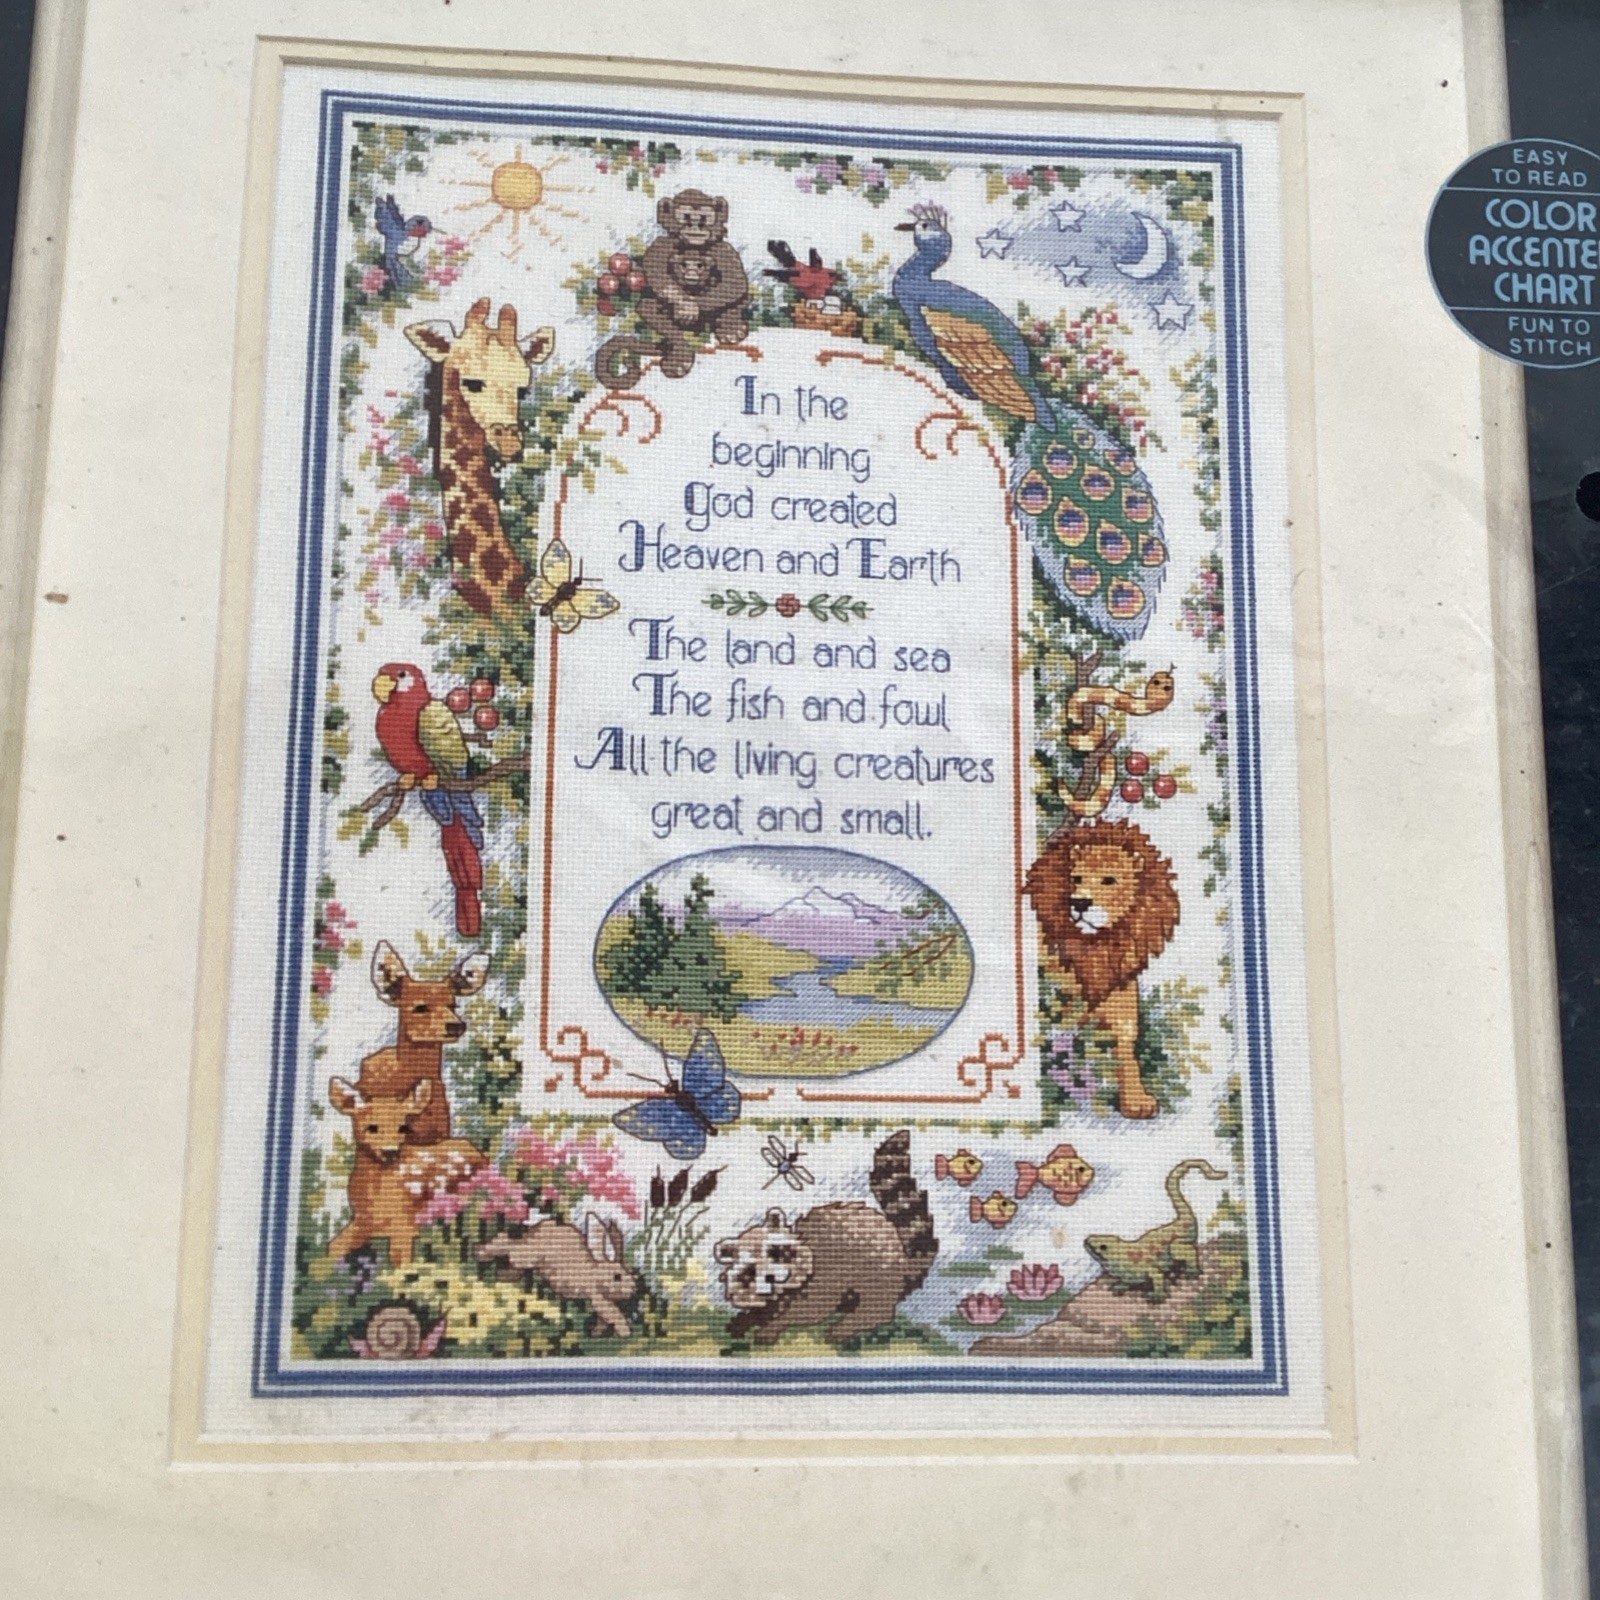 In the
beginning
God created
Heaven and Earth
The land and sea
The fish and fowl
All the living creatures
great and small.
EASY
TO READ
COLOR
ACCENTE
CHART
FUN TO
STITCH